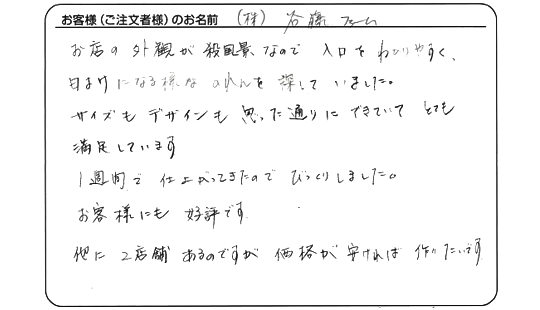 お客様(ご注文者様)のお名前 (株) 谷藤ファーム
お店の外観が殺風景なので 入口をわかりやすく、
日よけになる様なのれんを探していました。
サイズもデザインも思った通りにできていてとても
満足しています
1週間で仕上がってきたのでびっくりしました。
お客様にも好評です
他に2店舗あるのですが価格が安ければ作りたいです